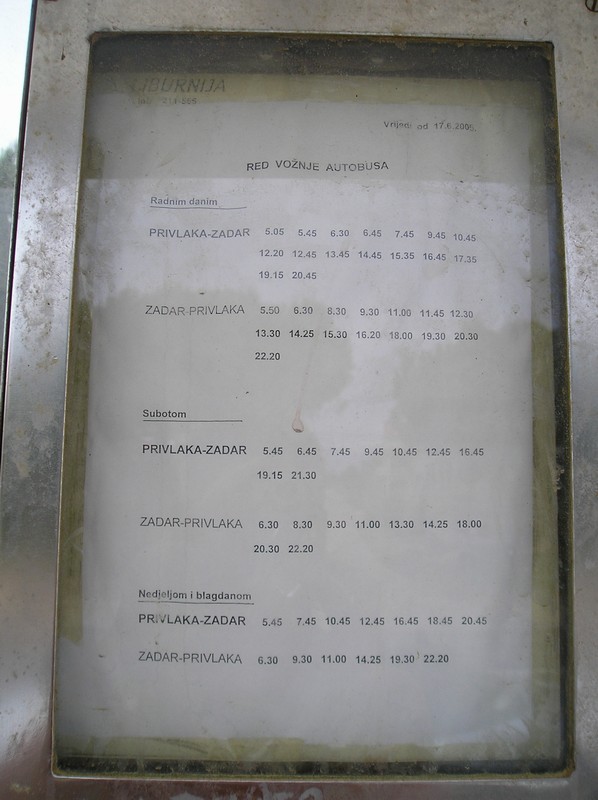 LIBURNIJA
Vrijedi od 17.6.2006.
RED VOŽNJE AUTOBUSA
Radnim danim
PRIVLAKA-ZADAR 5.05 5.45 6.30 6.45 7.45 9.45 10.45
12.20 12.45 13.45 14.45 15.35 16.45 17.35
19.15 20.45
ZADAR-PRIVLAKA 5.50 6.30 8.30 9.30 11.00 11.45 12.30
13.30 14.25 15.30 16.20 18.00 19.30 20.30
22.20
Subotom
PRIVLAKA-ZADAR 5.45 6.45 7.45 9.45 10.45 12.45 16.45
19.15 21.30
ZADAR-PRIVLAKA 6.30 8.30 9.30 11.00 13.30 14.25 18.00
20.30 22.20
Nedjeljom i blagdanom
PRIVLAKA-ZADAR 5.45 7.45 10.45 12.45 16.45 18.45 20.45
ZADAR-PRIVLAKA 6.30 9.30 11.00 14.25 19.30 22.20